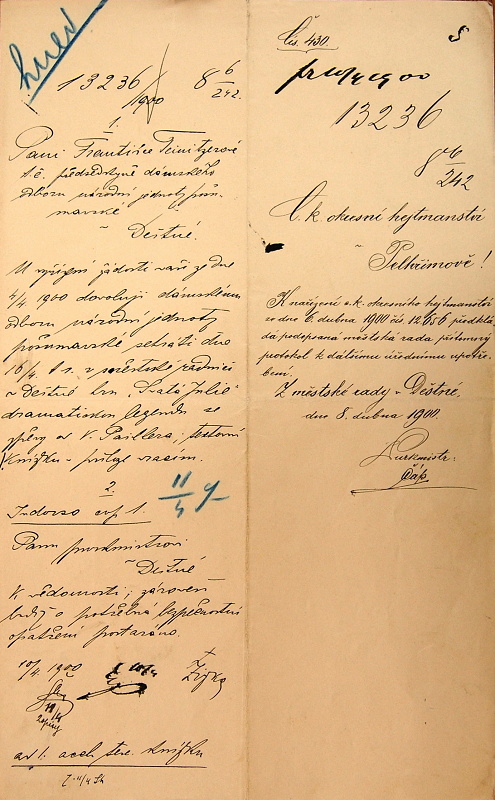 ihned
13236/1900 8 6/242
1.
Paní Františce Teinitzerové
t. č. předsedkyně dámského
odboru národní jednoty pošu-
mavské
v Deštné.
K vyřízení žádosti vaší ze dne
4/4 1900 dovoluji dámskému
odboru národní jednoty
pošumavské sehráti dne
16/4 t. r. v městské radnici
v Deštné hru "Svatá Julie"
dramatickou legendu se
zpěvy od V. Paillera; textovou
knížku v příloze vracím.
2.
Indorso exp 1.
Panu purkmistrovi
v Deštné
k vědomosti; zároveň
budiž o potřebná bezpečnostní
opatření postaráno.
10/4 1900
Žižka
11/4
ad 1. accl. text. knížku
11/4
Čís. 430.
5
13236
8 6/242
C. k. okresní hejtmanství
v Pelhřimově!
K nařízení c. k. okresního hejtmanství
ze dne 6. dubna 1900 čís. 12656 předklá-
dá podepsaná městská rada přítomný
protokol k dalšímu úřednímu upotře-
bení.
Z městské rady v Deštné,
dne 8. dubna 1900.
Purkmistr:
Čáp